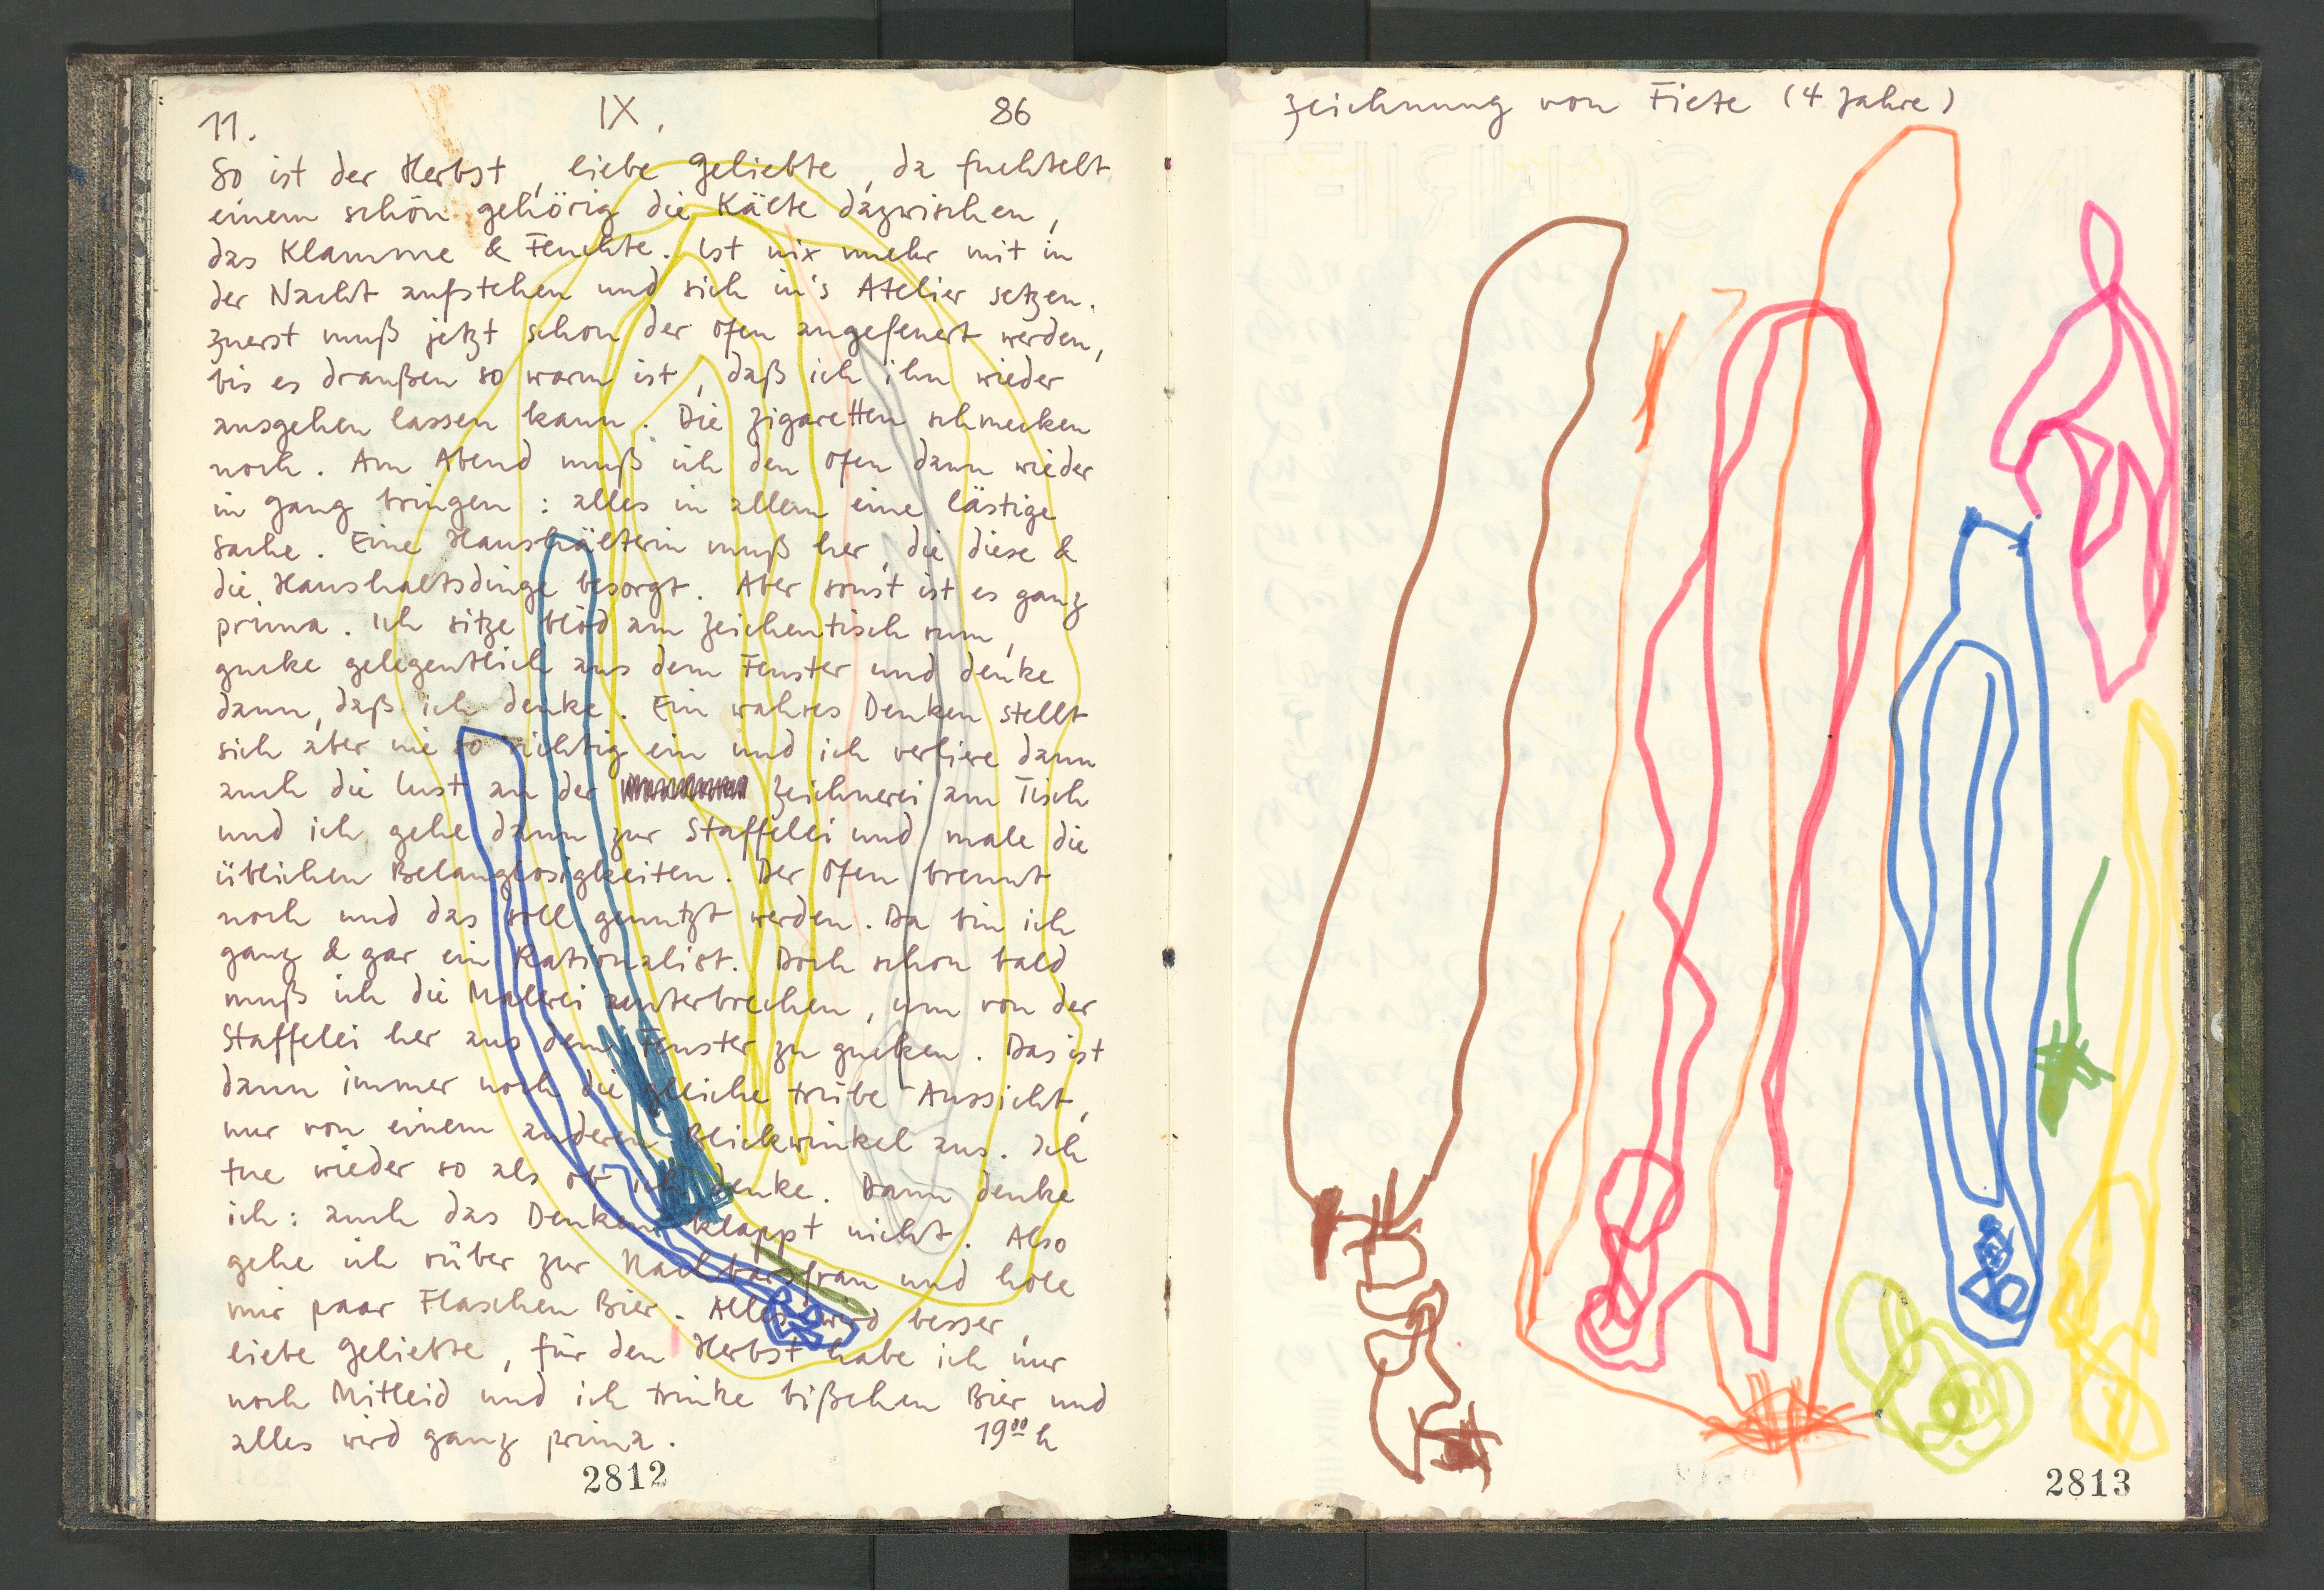 11. IX. 86
So ist der Herbst, liebe Geliebte, da fuchtelt
einem schön gehörig die Kälte dazwischen,
das Klamme & Feuchte. Ist nix mehr mit in
der Nacht aufstehen und sich in's Atelier setzen.
Zuerst muß jetzt schon der Ofen angefeuert werden,
bis es draußen so warm ist, daß ich ihn wieder
ausgehen lassen kann. Die Zigaretten schmecken
noch. Am Abend muß ich den Ofen dann wieder
in Gang bringen: alles in allem eine lästige
Sache. Eine Haushälterin muß her, die diese &
die Haushaltsdinge besorgt. Aber sonst ist es ganz
prima. Ich sitze blöd am Zeichentisch rum,
gucke gelegentlich aus dem Fenster und denke
dann, daß ich denke. Ein wahres Denken stellt
sich aber nie so richtig ein und ich verliere dann
auch die Lust an der Zeichnerei am Tisch
und ich gehe dann zur Staffelei und male die
üblichen Belanglosigkeiten. Der Ofen brennt
noch und das soll genutzt werden. Da bin ich
ganz & gar ein Rationalist. Doch schon bald
muß ich die Malerei unterbrechen, um von der
Staffelei her aus dem Fenster zu gucken. Das ist
dann immer noch die gleiche trübe Aussicht,
nur von einem anderen Blickwinkel aus. Ich
tue wieder so als ob ich denke. Dann denke
ich: auch das Denken klappt nicht. Also
gehe ich rüber zur Nachbarsfrau und hole
mir paar Flaschen Bier. Alles wird besser,
liebe Geliebte, für den Herbst habe ich nur
noch Mitleid und ich trinke bißchen Bier und
alles wird ganz prima. 19⁰⁰ h
2812
Zeichnung von Fiete (4 Jahre)
2813